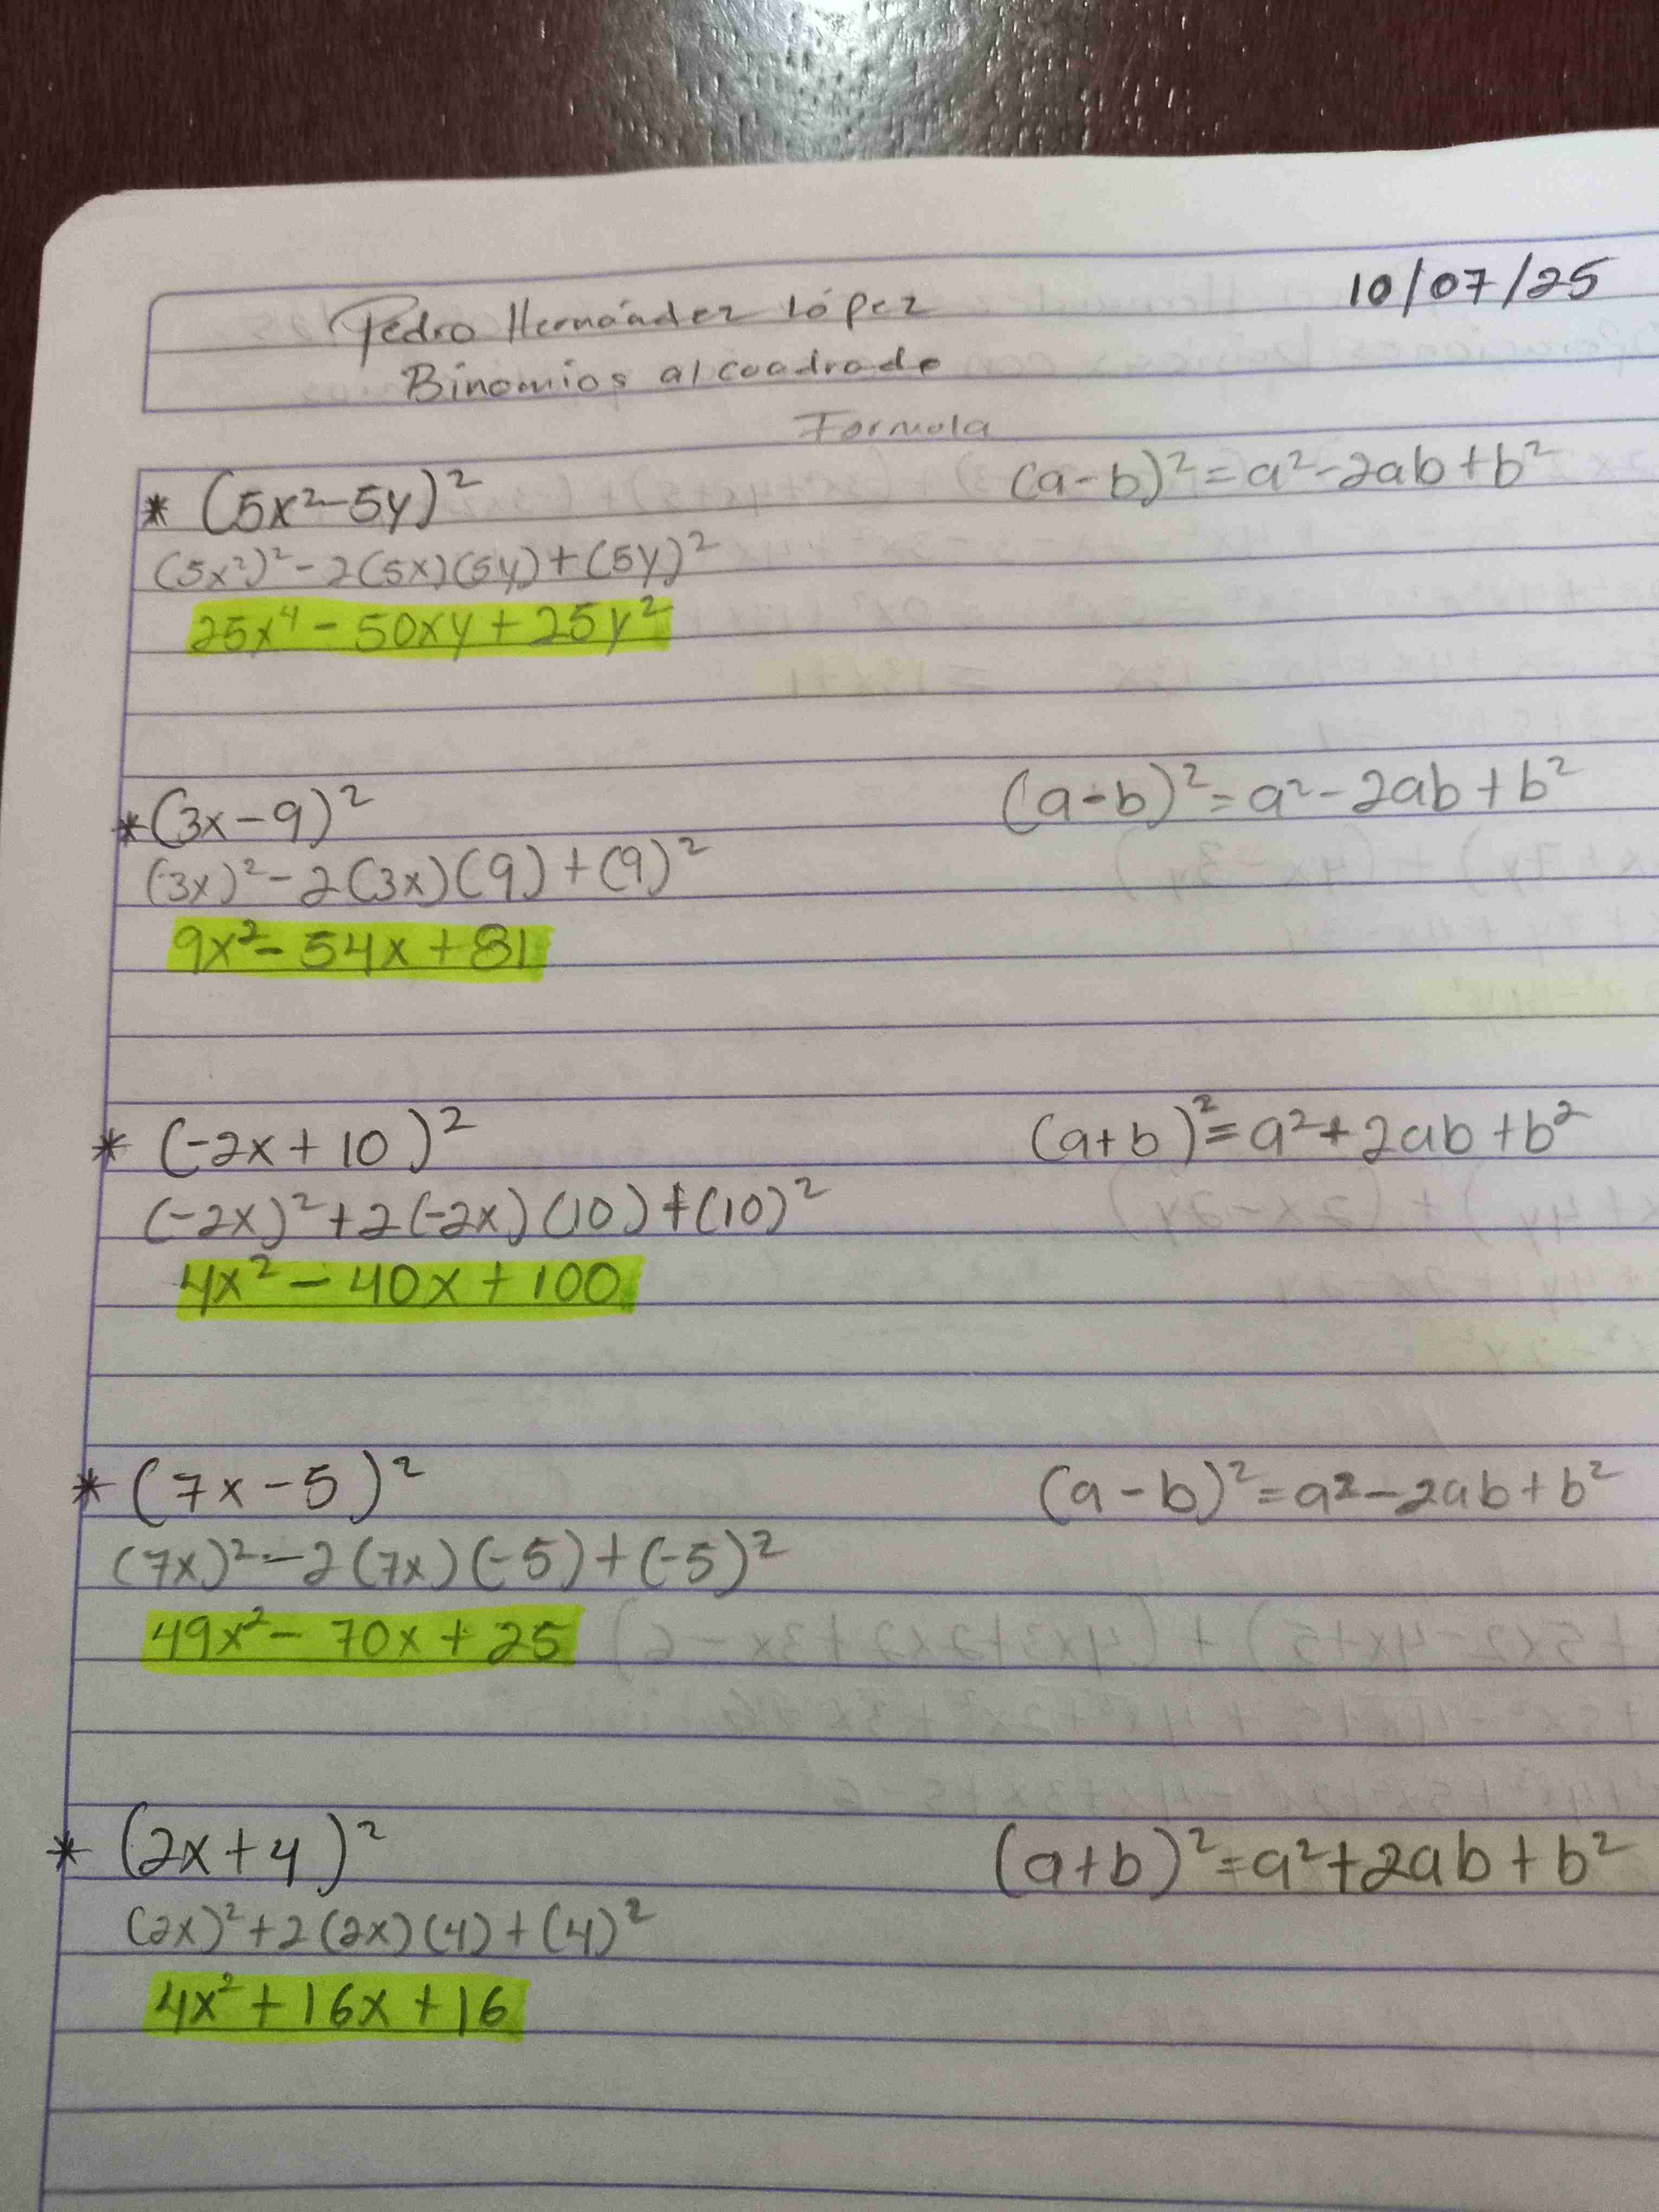 10/07/25
Pedro Hernández López
Binomios al cuadrado
Formula
* (5x²-5y)² (a-b)²=a²-2ab+b²
(5x²)²-2(5x)(5y)+(5y)²
25x⁴-50xy+25y²
*(3x-9)² (a-b)²=a²-2ab+b²
(3x)²-2(3x)(9)+(9)²
9x²-54x+81
* (-2x+10)² (a+b)²=a²+2ab+b²
(-2x)²+2(-2x)(10)+(10)²
4x²-40x+100
* (7x-5)² (a-b)²=a²-2ab+b²
(7x)²-2(7x)(-5)+(-5)²
49x²-70x+25
* (2x+4)² (a+b)²=a²+2ab+b²
(2x)²+2(2x)(4)+(4)²
4x²+16x+16